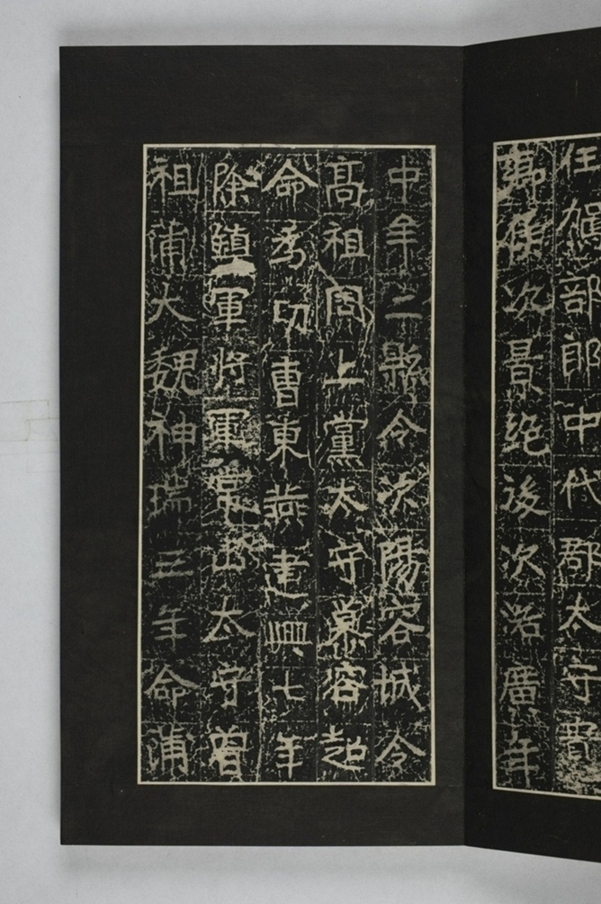 任駕部郎中代郡太守
侯次昌絶後次洛廣年
中牟二縣令次陽容城令
高祖岡上黨太守慕容超
命爲功曹東燕建興七年
除鎮軍將軍常山太守曾
祖浦大魏神瑞三年命浦